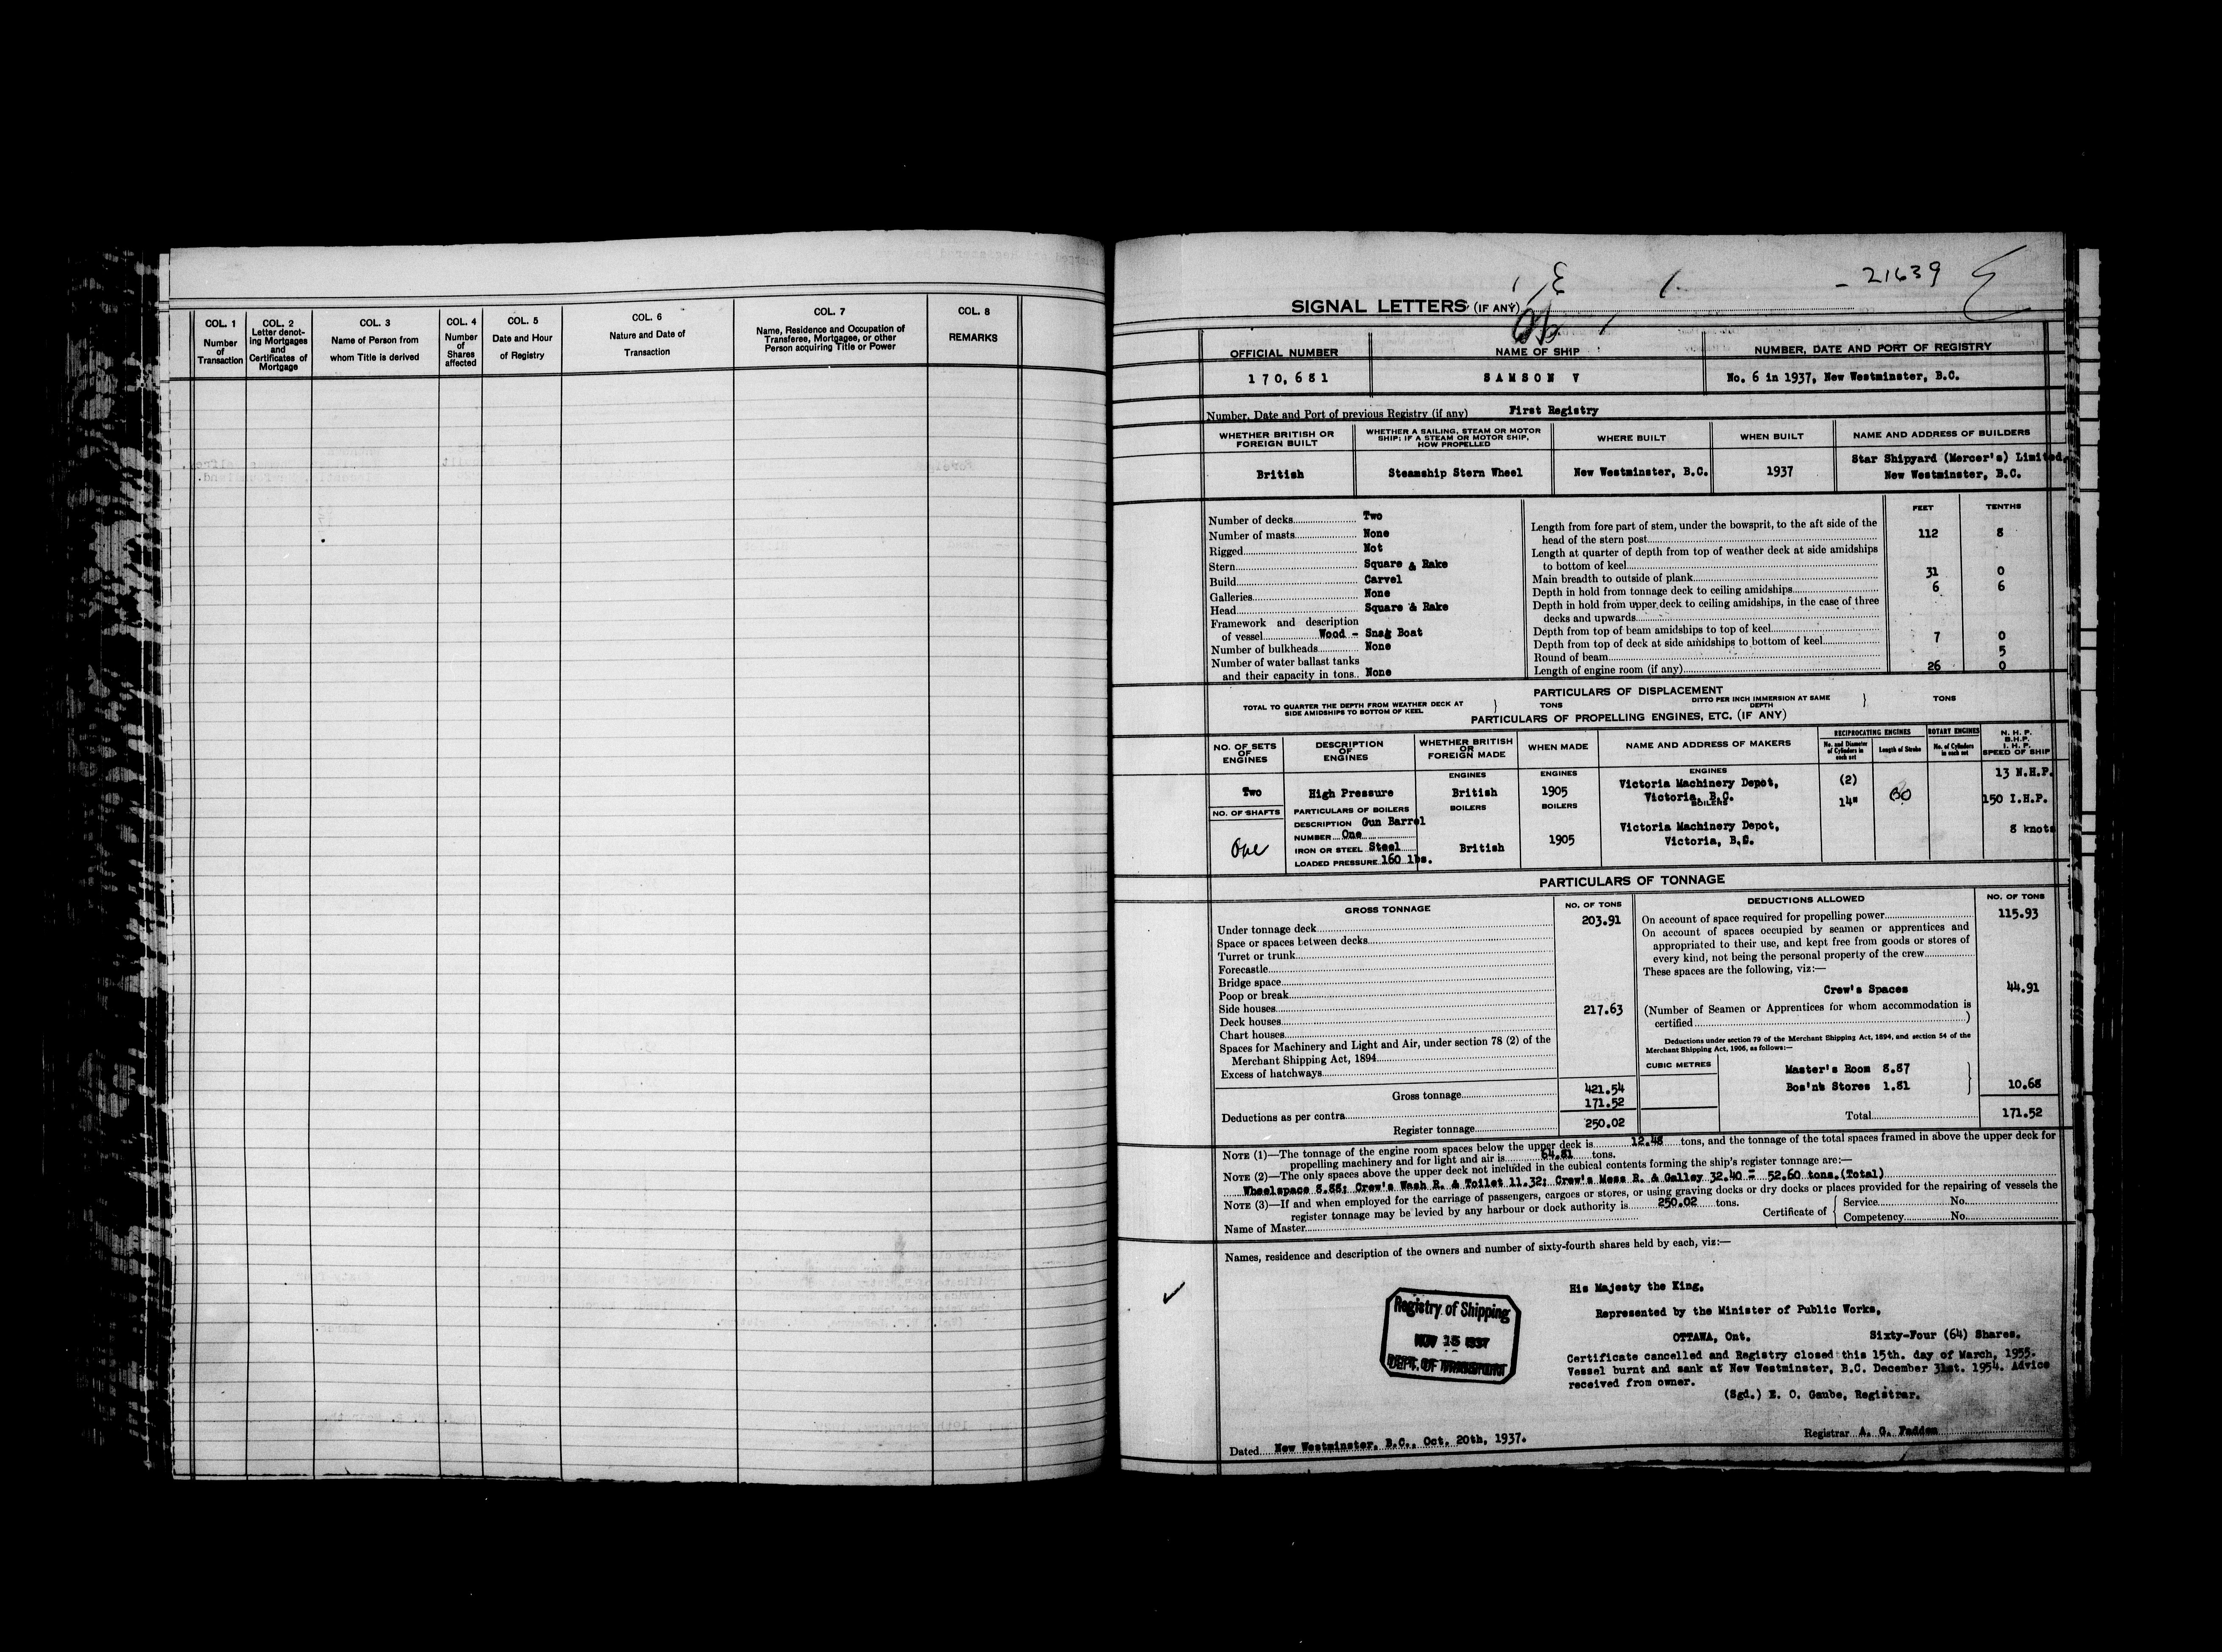 COL. 1
Number
of
Transaction
COL. 2
Letter denot-
ing Mortgages
and
Certificates of
Mortgage
COL. 3
Name of Person from
whom Title is derived
COL. 4
Number
of
Shares
affected
COL. 5
Date and Hour
of Registry
COL. 6
Nature and Date of
Transaction
COL. 7
Name, Residence and Occupation of
Transferee, Mortgagee, or other
Person acquiring Title or Power
COL. 8
REMARKS
21639
SIGNAL LETTERS (IF ANY)
OFFICIAL NUMBER
NAME OF SHIP
NUMBER, DATE AND PORT OF REGISTRY
170,681
SAMSON V
No. 6 in 1937, New Westminster, B.C.
Number, Date and Port of previous Registry (if any) First Registry
WHETHER BRITISH OR
FOREIGN BUILT
WHETHER A SAILING, STEAM OR MOTOR
SHIP; IF A STEAM OR MOTOR SHIP,
HOW PROPELLED
WHERE BUILT
WHEN BUILT
NAME AND ADDRESS OF BUILDERS
British
Steamship Stern Wheel
New Westminster, B.C.
1937
Star Shipyard (Mercer's) Limited,
New Westminster, B.C.
Number of decks Two
Number of masts None
Rigged Not
Stern Square & Rake
Build Carvel
Galleries None
Head Square & Rake
Framework and description
of vessel Wood - Snag Boat
Number of bulkheads None
Number of water ballast tanks
and their capacity in tons.. None
FEET TENTHS
Length from fore part of stem, under the bowsprit, to the aft side of the
head of the stern post 112 8
Length at quarter of depth from top of weather deck at side amidships
to bottom of keel
Main breadth to outside of plank 31 0
Depth in hold from tonnage deck to ceiling amidships 6 6
Depth in hold from upper deck to ceiling amidships, in the case of three
decks and upwards
Depth from top of beam amidships to top of keel
Depth from top of deck at side amidships to bottom of keel 7 0
Round of beam 5
Length of engine room (if any) 26 0
PARTICULARS OF DISPLACEMENT
TOTAL TO QUARTER THE DEPTH FROM WEATHER DECK AT
SIDE AMIDSHIPS TO BOTTOM OF KEEL
TONS
DITTO PER INCH IMMERSION AT SAME
DEPTH
TONS
PARTICULARS OF PROPELLING ENGINES, ETC. (IF ANY)
NO. OF SETS
OF
ENGINES
DESCRIPTION
OF
ENGINES
WHETHER BRITISH
OR
FOREIGN MADE
WHEN MADE
NAME AND ADDRESS OF MAKERS
RECIPROCATING ENGINES
No. and Diameter
of Cylinders in
each set
Length of Stroke
ROTARY ENGINES
No. of Cylinders
in each set
N. H. P.
B.H.P.
I. H. P.
SPEED OF SHIP
ENGINES
ENGINES
ENGINES
Two
High Pressure
British
1905
Victoria Machinery Depot,
Victoria, B.C.
(2)
14"
13 N.H.P.
150 I.H.P.
8 knots
NO. OF SHAFTS
One
PARTICULARS OF BOILERS
DESCRIPTION Gun Barrel
NUMBER One
IRON OR STEEL Steel
LOADED PRESSURE 160 lbs.
BOILERS
British
BOILERS
1905
BOILERS
Victoria Machinery Depot,
Victoria, B.C.
PARTICULARS OF TONNAGE
GROSS TONNAGE
NO. OF TONS
Under tonnage deck 203.91
Space or spaces between decks
Turret or trunk
Forecastle
Bridge space
Poop or break
Side houses 217.63
Deck houses
Chart houses
Spaces for Machinery and Light and Air, under section 78 (2) of the
Merchant Shipping Act, 1894
Excess of hatchways
Gross tonnage 421.54
Deductions as per contra 171.52
Register tonnage 250.02
DEDUCTIONS ALLOWED
NO. OF TONS
On account of space required for propelling power 115.93
On account of spaces occupied by seamen or apprentices and
appropriated to their use, and kept free from goods or stores of
every kind, not being the personal property of the crew
These spaces are the following, viz:—
Crew's Spaces 44.91
(Number of Seamen or Apprentices for whom accommodation is
certified )
Deductions under section 79 of the Merchant Shipping Act, 1894, and section 54 of the
Merchant Shipping Act, 1906, as follows:—
CUBIC METRES
Master's Room 8.87
Bos'n's Stores 1.81
10.68
Total 171.52
NOTE (1)—The tonnage of the engine room spaces below the upper deck is 12.48 tons, and the tonnage of the total spaces framed in above the upper deck for
propelling machinery and for light and air is 64.81 tons.
NOTE (2)—The only spaces above the upper deck not included in the cubical contents forming the ship's register tonnage are:—
Wheelspace 8.88; Crew's Wash R. & Toilet 11.32; Crew's Mess R. & Galley 32.40 = 52.60 tons.(Total)
NOTE (3)—If and when employed for the carriage of passengers, cargoes or stores, or using graving docks or dry docks or places provided for the repairing of vessels the
register tonnage may be levied by any harbour or dock authority is 250.02 tons.
Name of Master
Certificate of
Service No.
Competency No.
Names, residence and description of the owners and number of sixty-fourth shares held by each, viz:—
Registry of Shipping
NOV 15 1937
DEPT. OF TRANSPORT
His Majesty the King,
Represented by the Minister of Public Works,
OTTAWA, Ont. Sixty-Four (64) Shares.
Certificate cancelled and Registry closed this 15th. day of March, 1955.
Vessel burnt and sank at New Westminster, B.C. December 31st. 1954. Advice
received from owner.
(Sgd.) E. O. Gaube, Registrar.
Dated New Westminster, B.C., Oct. 20th, 1937.
Registrar A. G. Padden